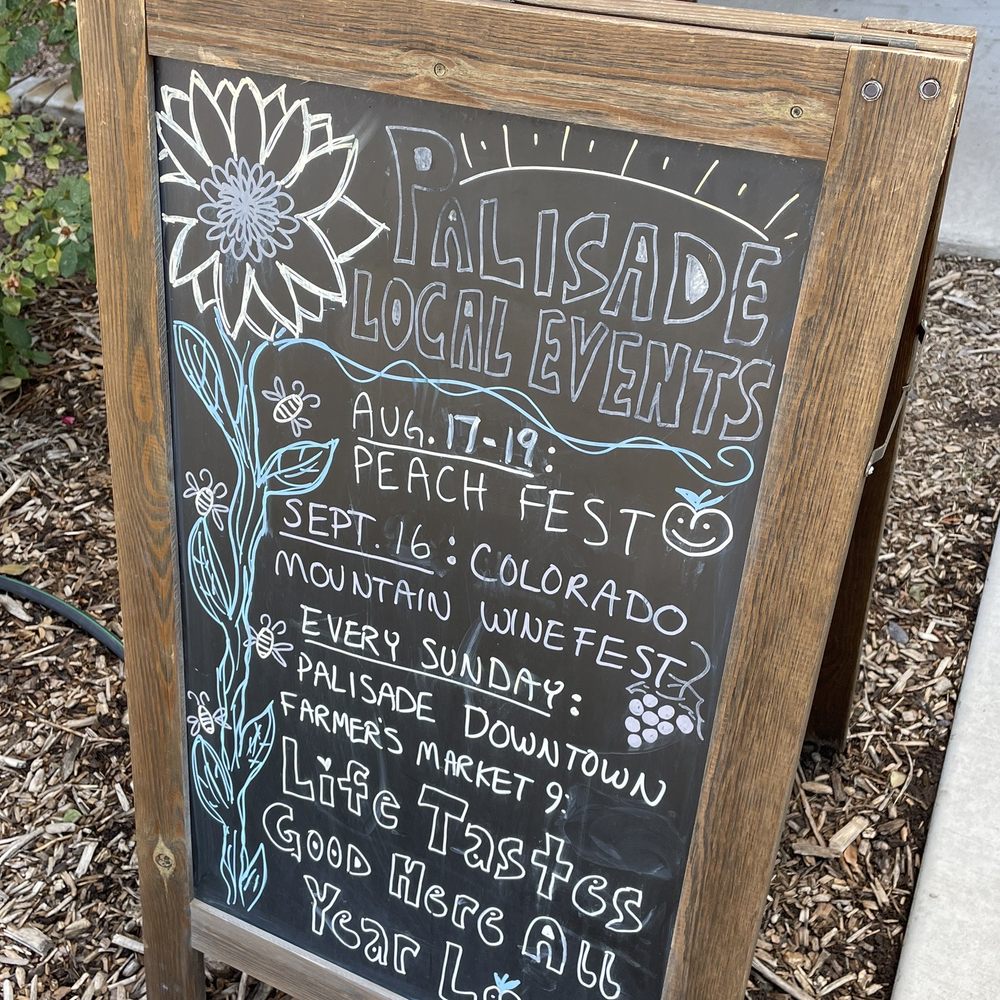 PALISADE
LOCAL EVENTS
AUG. 17-19:
PEACH FEST
SEPT. 16: COLORADO
MOUNTAIN WINEFEST
EVERY SUNDAY:
PALISADE DOWNTOWN
FARMER'S MARKET 9
Life Tastes
GOOD Here All
Year